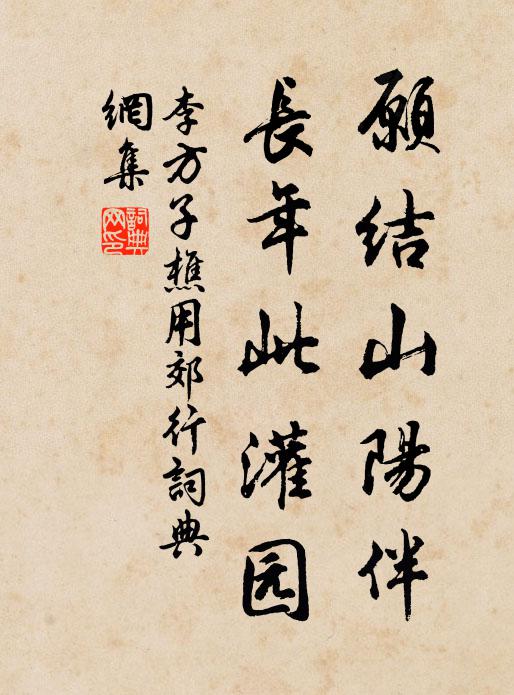 願结山陽伴
長年此灌园
李方子樵用郊行詞典
網集
詞典网印